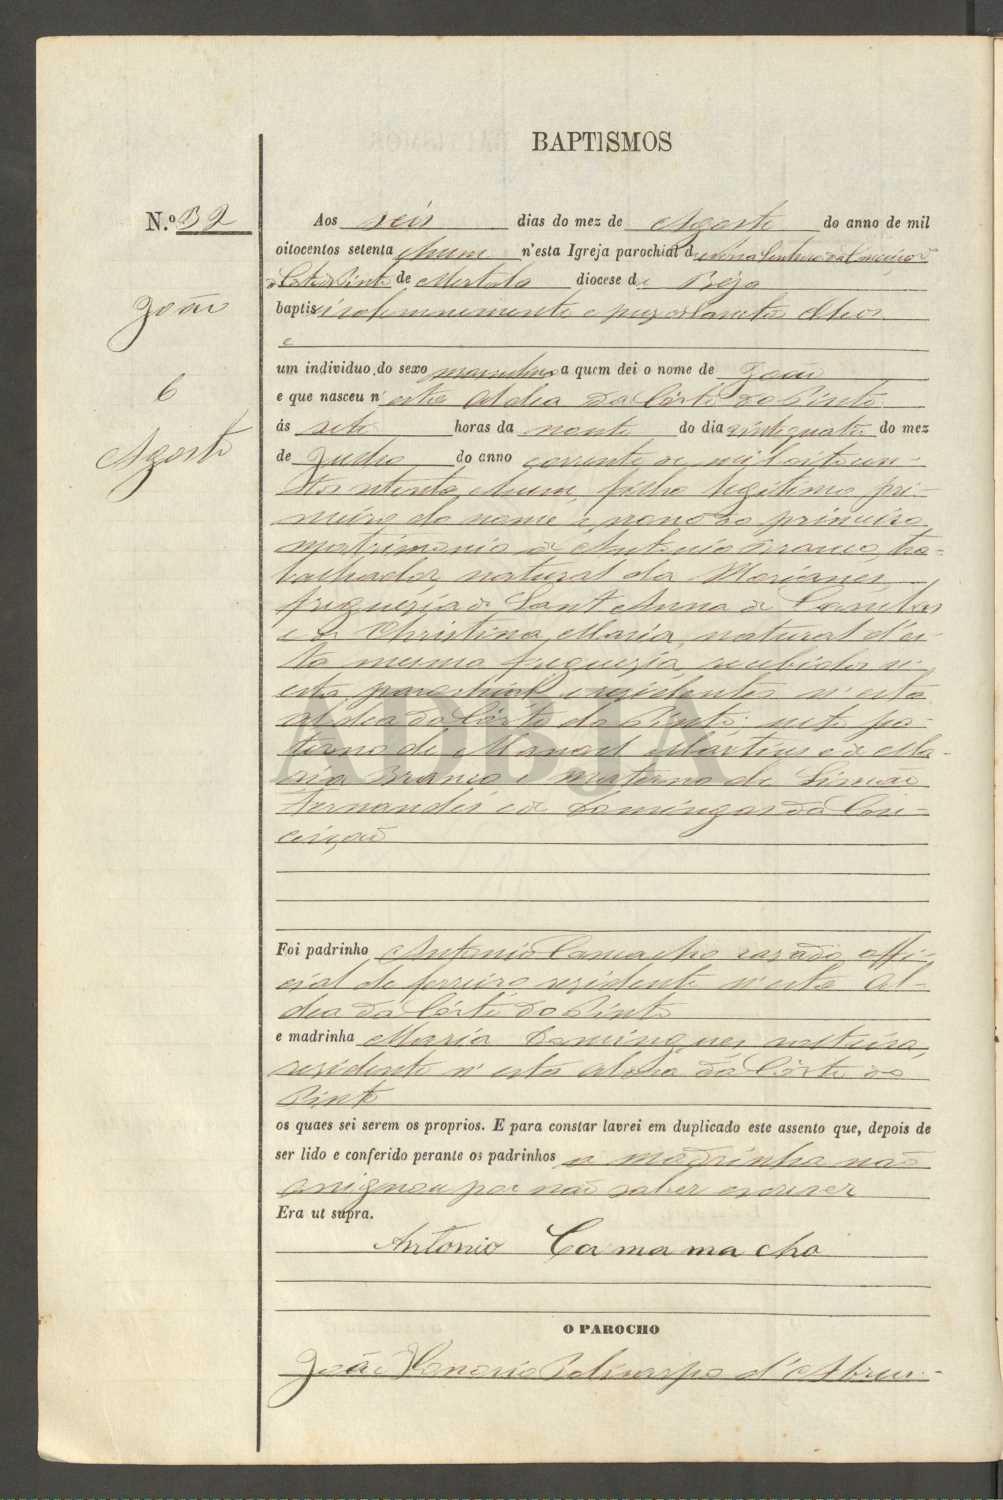 BAPTISMOS
N.º 32
João
6
Agosto
Aos seis dias do mez de Agosto do anno de mil
oitocentos setenta e hum n'esta Igreja parochial de Nossa Senhora da Conceição
da Corte do Pinto de Mertola diocese de Beja
baptisei solemnemente e puz os Santos Oleos
a
um individuo do sexo masculino a quem dei o nome de João
e que nasceu n'esta Aldea da Côrte do Pinto
ás sete horas da noute do dia vinte quatro do mez
de Julho do anno corrente de mil oitocen-
tos setenta e hum, filho legitimo pri-
meiro do nome e nono do primeiro
matrimonio de Antonio Branco, tra-
balhador, natural da Morianes,
freguezia de Sant'Anna de Cambas
e de Christina Maria, natural d'es-
ta mesma freguezia, recebidos n'
esta parochial e residentes n'esta
aldea da Côrte do Pinto; neto pa-
terno de Manoel Martins e de Ma-
ria Branca e materno de Simão
Fernandes e de Domingas da Con-
ceição
Foi padrinho Antonio Camacho casado, offi-
cial de ferreiro residente n'esta Al-
dea da Côrte do Pinto
e madrinha Maria Domingues solteira,
residente n'esta aldea da Côrte do
Pinto
os quaes sei serem os proprios. E para constar lavrei em duplicado este assento que, depois de
ser lido e conferido perante os padrinhos a madrinha não
assignou por não saber escrever
Era ut supra.
Antonio Camamacho
O PAROCHO
João Polycarpo d'Abreu
ADBJA